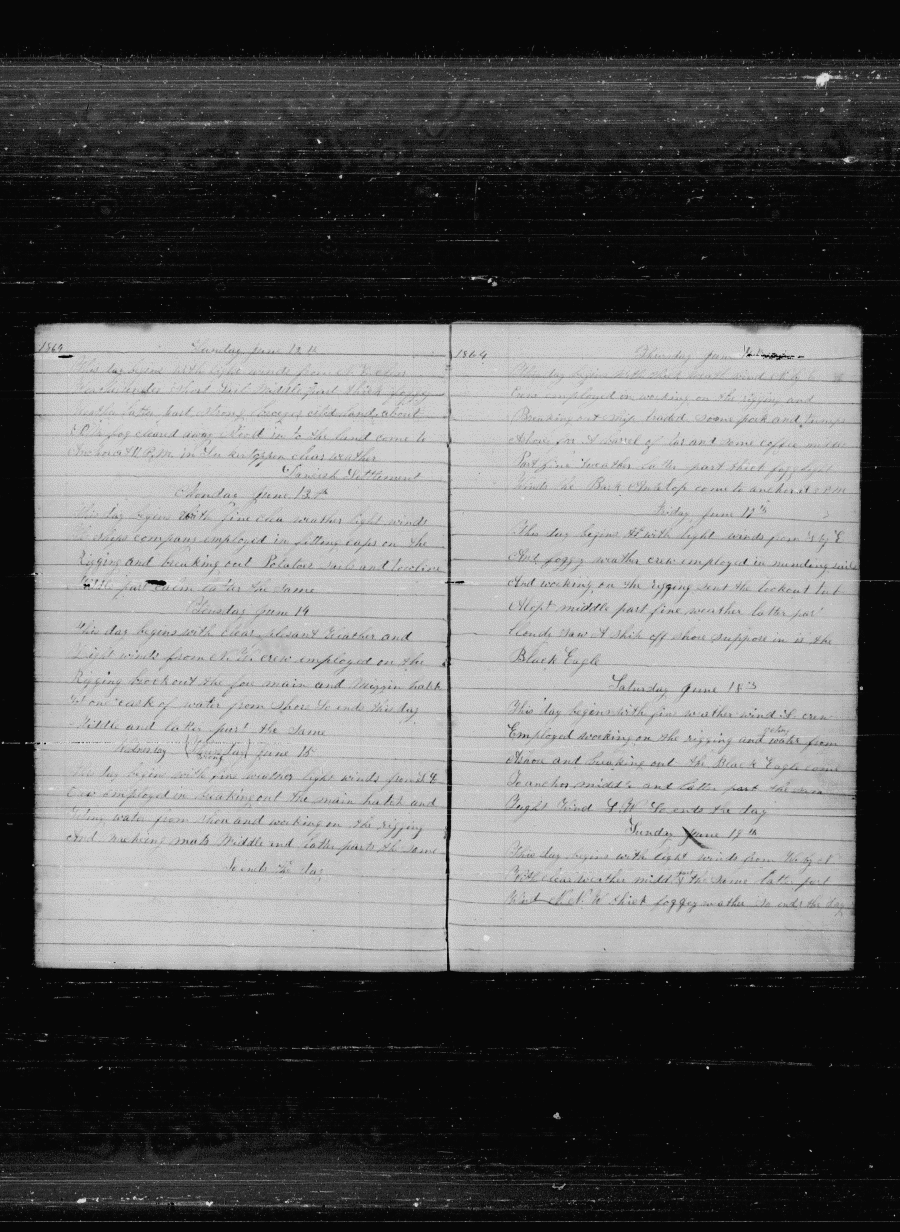 1864
Sunday June 12th
This day begins with light winds from N.E. clear
weather under short sail Middle part thick foggy
weather latter part strong breezes land about
P.M. fog cleard away to the land come to
Anchor at P.M. in clear weather
Danish Settlement
Monday June 13th
This day begins with fine clea weather light winds
The ships company employed in fitting caps on the
Rigging and breaking out Potatoes sails and
Middle part calm latter the same
Tuesday June 14
This day begins with clear plesant weather and
Light winds from N. crew employed on the
Rigging brock out the fore main and Mizzin hatch
Got one cask of water from shore So ends this day
Middle and latter part the same
Wednesday (Thursday) June 15
This day begins with fine weather light winds from S E
Crew employed in breaking out the main hatch and
water from shore and working on the rigging
And making mats Middle and latter parts the same
So ends the day
1864
Thursday June
This day begins with thick weath wind N by
Crew employed in working on the rigging and
Breaking out ship traded some pork and
Ashore for A barrel of tar and some coffee middle
Part fine weather latter part thick foggy light
Winds the Bark come to anchor at P M
Friday June 17th
This day begins with light winds from S by E
And foggy weather crew employed in mending sails
And working on the rigging sent the lookout
Aloft middle part fine weather latter part
Cloudy saw A ship off shore suppose in is the
Black Eagle
Saturday June 18th
This day begins with fin weather wind crew
Employed working on the rigging and water from
Ashore and breaking out the Black Eagle come
To anchor middle and latter part the same
Light Wind S.W. So ends the day
Sunday June 19th
This day begins with light winds from
With clear weather midd part the same latter part
Wind N.N.W thick foggy weather So ends the day